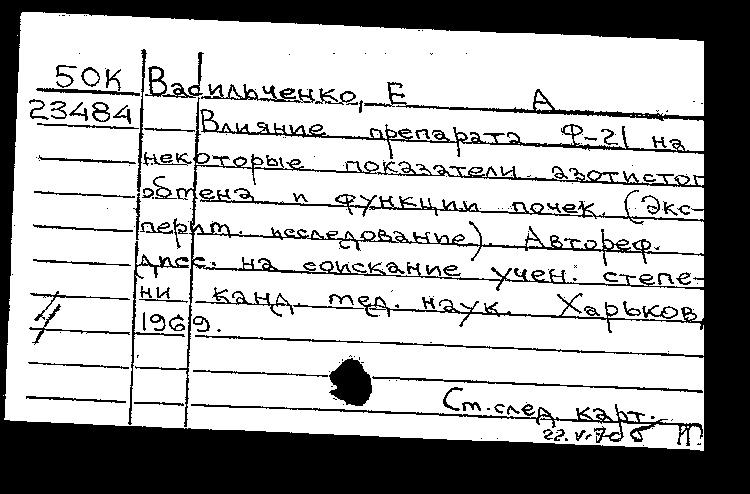 50К Васильченко, Е А
23484 Влияние препарата Ф-21 на
некоторые показатели азотистог
обмена и функции почек. (Экс-
перим. исследование). Автореф.
дисс. на соискание учен. степе-
ни канд. мед. наук. Харьков,
1969.
См. след. карт.
22.V.70 б